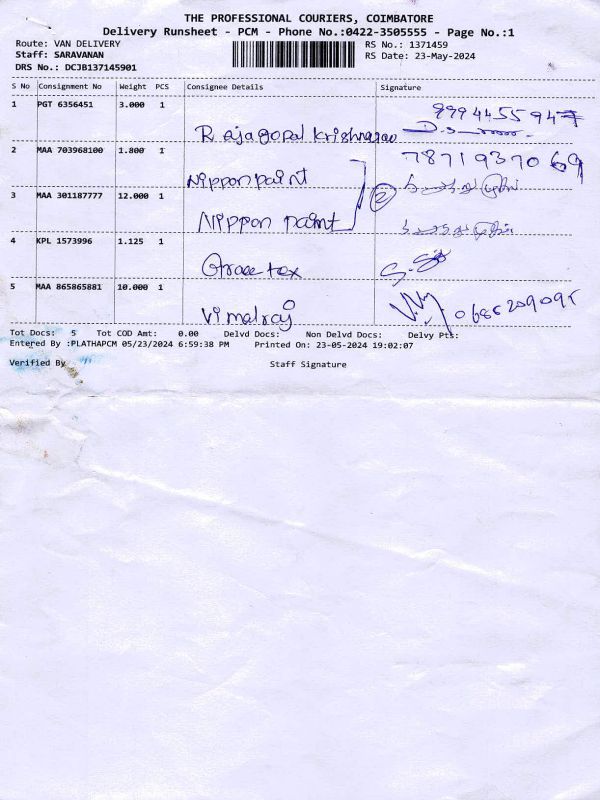 THE PROFESSIONAL COURIERS, COIMBATORE
Delivery Runsheet - PCM - Phone No.:0422-3505555 - Page No.:1
Route: VAN DELIVERY RS No.: 1371459
Staff: SARAVANAN RS Date: 23-May-2024
DRS No.: DCJB137145901
S No Consignment No Weight PCS Consignee Details Signature
1 PGT 6356451 3.000 1
Rajagopal Krishnarao 9994455947
2 MAA 703968100 1.800 1 7871937069
Nippon paint
3 MAA 301187777 12.000 1 2
Nippon paint
4 KPL 1573996 1.125 1
Gracetex
5 MAA 865865881 10.000 1
Vimalraj
Tot Docs: 5 Tot COD Amt: 0.00 Delvd Docs: Non Delvd Docs: Delvy Pts:
Entered By :PLATHAPCM 05/23/2024 6:59:38 PM Printed On: 23-05-2024 19:02:07
Verified By Staff Signature